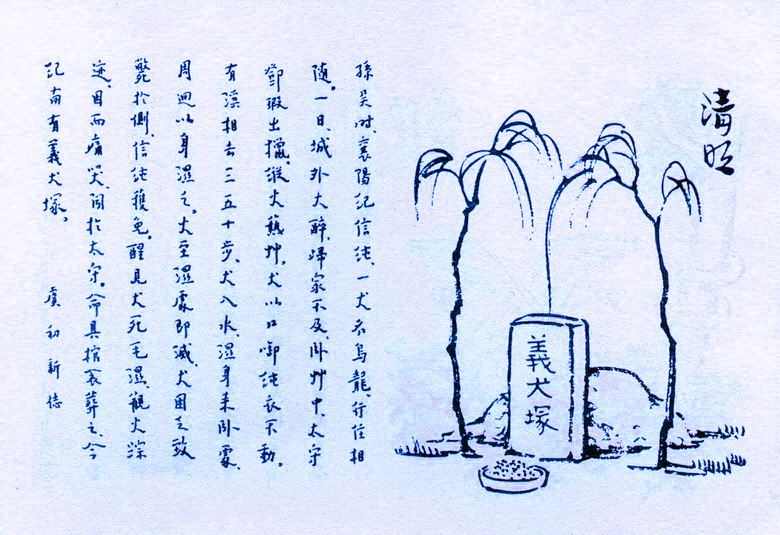 清明
義犬塚
孫吳时、襄陽記信純、一犬名烏龍、行住相
随。一日、城外大醉、歸家不及、卧艸中、太守
鄧瑕出獵、縱火爇艸、犬以口啣純衣不動。
有溪相去三五十步、犬入水、濕身来卧處、
周迴以身濕之。火至濕處即滅、犬困乏致
斃於側、信純獲免。醒見犬死毛濕、觀火踪
迹、因而痛哭、聞於太守。命具棺衾葬之、今
記南有義犬塚。 虞初新誌